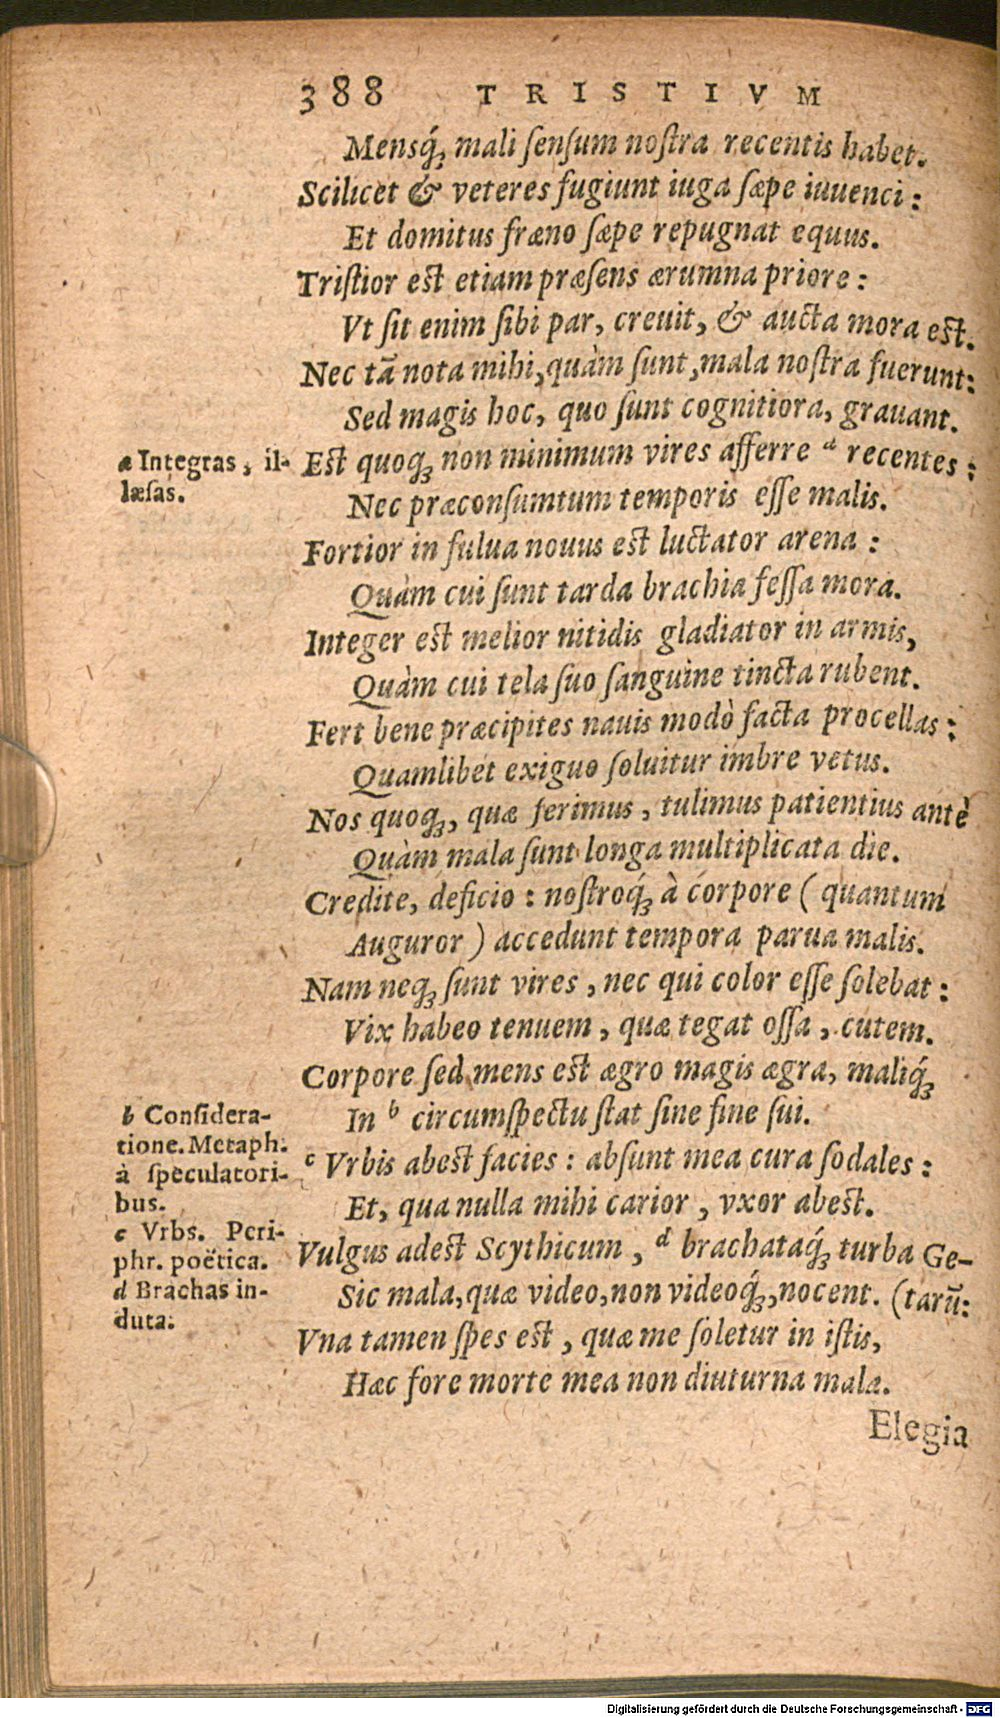 388 TRISTIVM
Mensq́; mali ſenſum noſtra recentis habet.
Scilicet & veteres fugiunt iuga ſæpe iuuenci:
Et domitus fræno ſæpe repugnat equus.
Triſtior est etiam præſens ærumna priore:
Vt ſit enim ſibi par, creuit, & aucta mora est.
Nec tã nota mihi, quàm ſunt, mala noſtra fuerunt:
Sed magis hoc, quo ſunt cognitiora, grauant.
a Integras, il-
læſas.
Est quoq; non minimum vires afferre a recentes:
Nec præconſumtum temporis eſſe malis.
Fortior in fulua nouus est luctator arena:
Quàm cui ſunt tarda brachia feſſa mora.
Integer est melior nitidis gladiator in armis,
Quàm cui tela ſuo ſanguine tincta rubent.
Fert bene præcipites nauis modò facta procellas:
Quamlibet exiguo ſoluitur imbre vetus.
Nos quoq;, quæ ferimus, tulimus patientius antè
Quàm mala ſunt longa multiplicata die.
Credite, deficio: noſtroq́; à corpore (quantum
Auguror) accedunt tempora parua malis.
Nam neq; ſunt vires, nec qui color eſſe ſolebat:
Vix habeo tenuem, quæ tegat oſſa, cutem.
Corpore ſed mens est ægro magis ægra, maliq́;
In b circumſpectu ſtat ſine fine ſui.
b Conſidera-
tione. Metaph.
à ſpeculatori-
bus.
c Vrbs. Peri-
phr. poëtica.
d Brachas in-
duta.
c Vrbis abest facies: abſunt mea cura ſodales:
Et, qua nulla mihi carior, vxor abest.
Vulgus adest Scythicum, d brachataq́; turba Ge-
Sic mala, quæ video, non videoq́;, nocent. (tarũ:
Vna tamen ſpes est, quæ me ſoletur in iſtis,
Hæc fore morte mea non diuturna mala.
Elegia
Digitalisierung gefördert durch die Deutsche Forschungsgemeinschaft - DFG